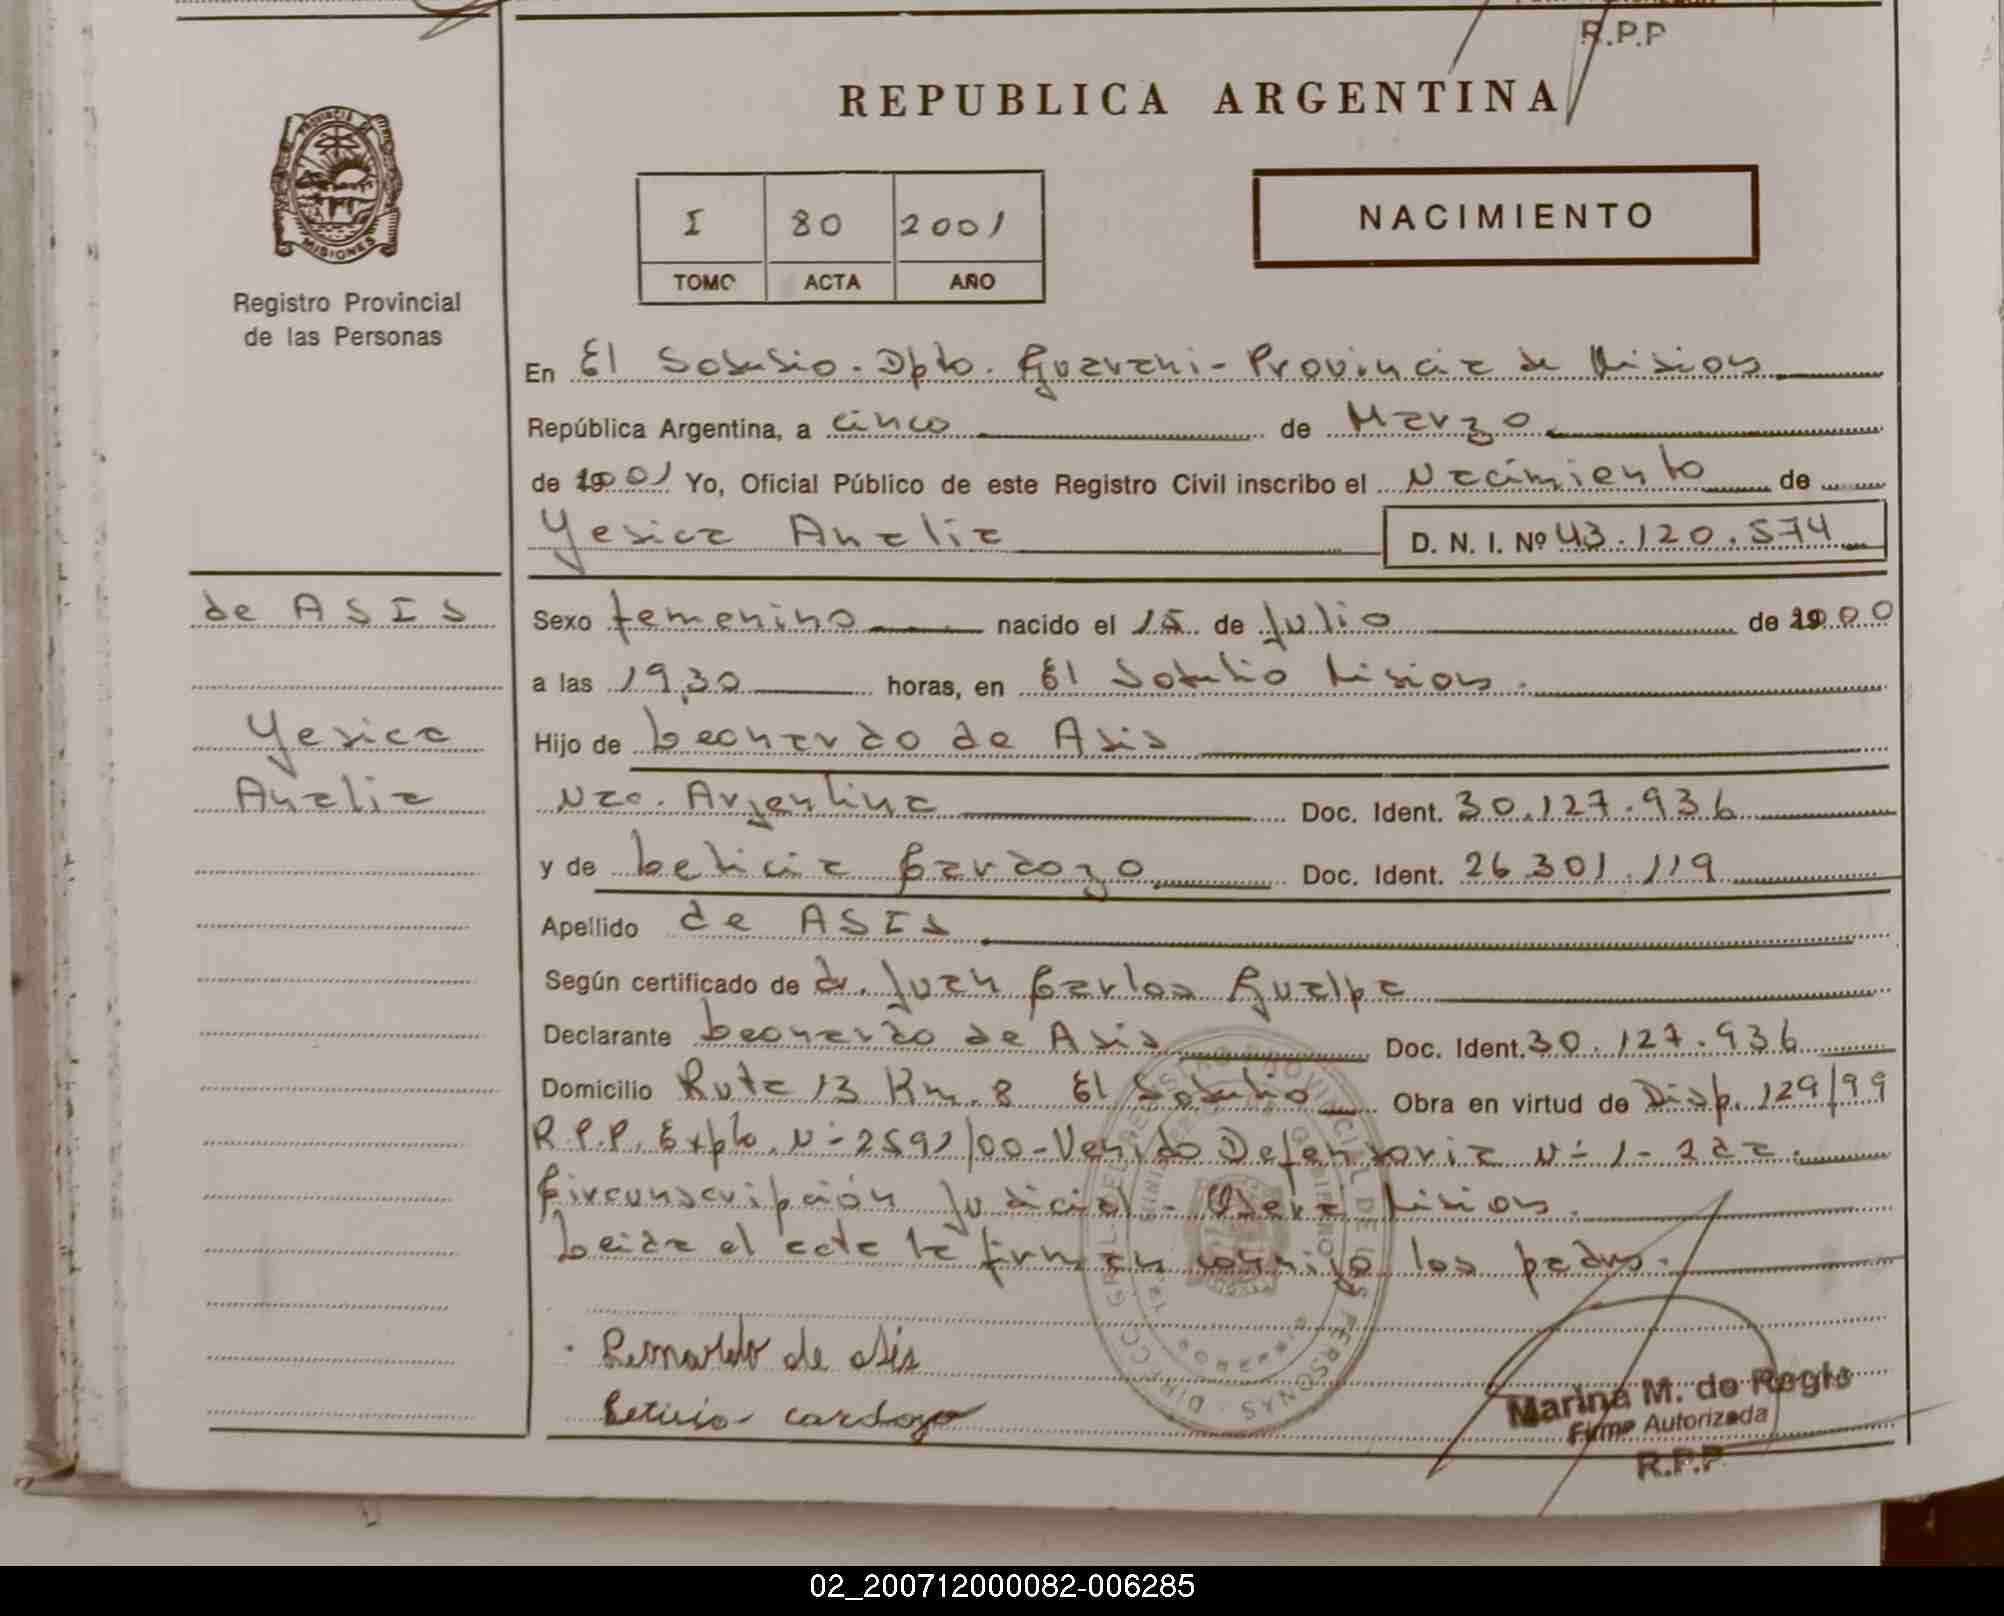 R.P.P
REPUBLICA ARGENTINA
PROVINCIA DE
MISIONES
Registro Provincial
de las Personas
I 80 2001
TOMO ACTA AÑO
NACIMIENTO
En El Soberbio. Dpto. Guarani - Provincia de Misiones
República Argentina, a cinco de Marzo
de 2001 Yo, Oficial Público de este Registro Civil inscribo el Nacimiento de
Yesica Analia D. N. I. Nº 43.120.574
de ASIS
Yesica
Analia
Sexo femenino nacido el 15 de Julio de 2000
a las 19,30 horas, en El Soberbio Misiones.
Hijo de Leonardo de Asis
Nac. Argentina Doc. Ident. 30.127.936
y de Leticia Cardozo Doc. Ident. 26.301.119
Apellido de ASIS
Según certificado de dr. Juan Carlos Gualpa
Declarante Leonardo de Asis Doc. Ident. 30.127.936
Domicilio Ruta 13 Km. 8 El Soberbio Obra en virtud de Disp. 129/99
R.P.P. Expte. Nº 2592/00 - Venido Defensoria Nº 1 - 2da.
Circunscripción Judicial - Oberá Misiones.
Leida el acta la firman conmigo los padres.
de Asis
Leticia cardozo
Marina M. de Regis
Firma Autorizada
R.P.P
02_200712000082-006285